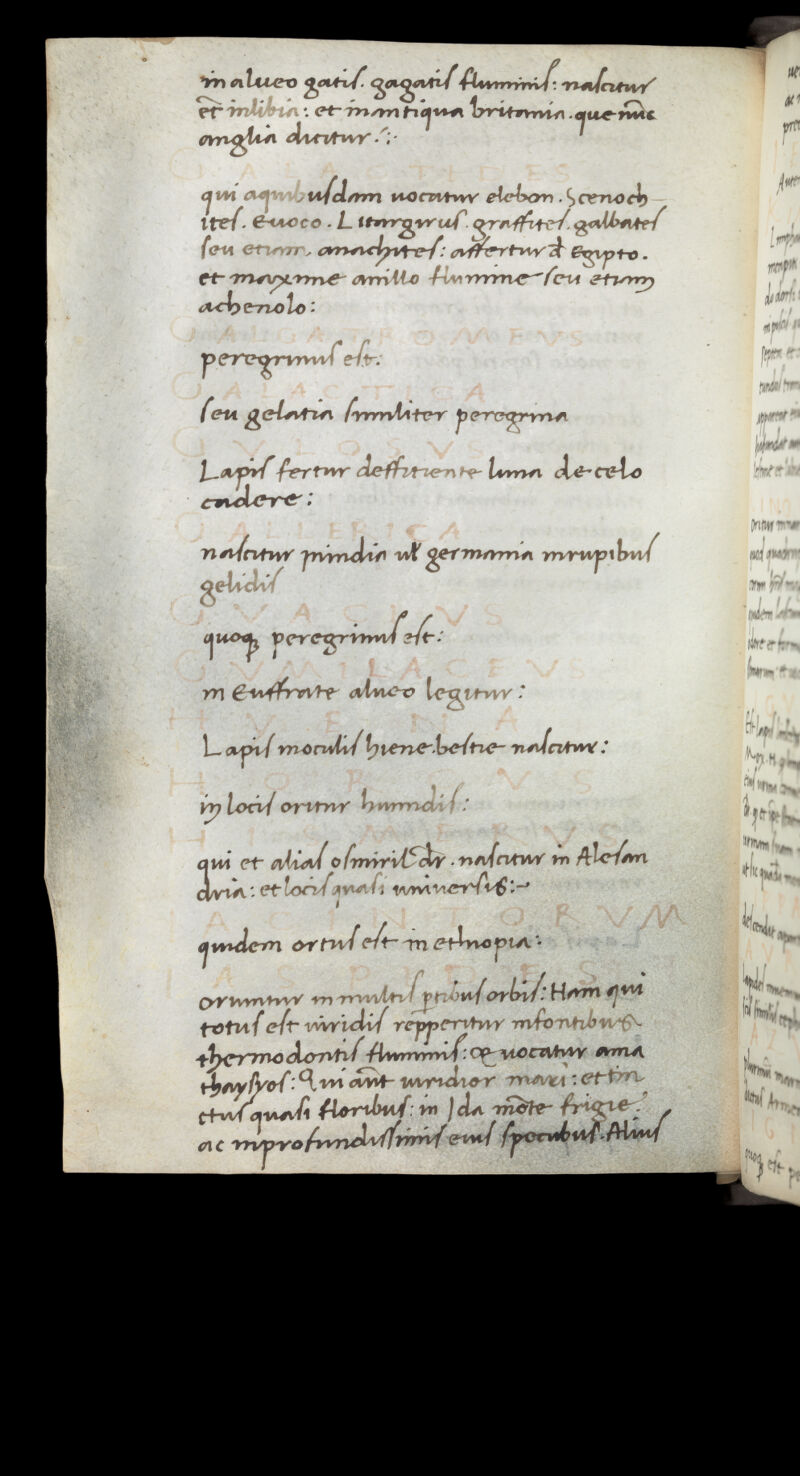 in alueo gatis. gagatis fluminis: nascitur
et inlibia: et in antiqua britania. que nūc
anglia dicitur.
GALACTIDES
qui aquibusdam uocatur elebon. Scenoch
ites. Euoco. Litargirus. graffites. galbates
seu etiam. anachites: affertur de Egipto.
et maxime anillo flumine seu etiam
achenolo:
GALGATROMEVS
peregrinus est.
GALACTICA
seu gelatia similiter peregrina
GVLOSVS
Lapis fertur deffitiente luna de celo
cadere:
GALLERICA
nascitur inindia ul germania inrupibus
gelidis
GVACIVS
quoq; peregrinus est:
GVMILACEVS
in Euffrate alueo legitur:
HVENA
Lapis inoculis hiene bestie nascitur:
HORCVS
in locis oritur humidis:
qui et alias osmiril dr̄. nascitur in Alesan
dria: et locis quasi uniuersis:
IACINTORVM
quidem ortus est in ethiopia:
IASPIDES
oriuntur in multis ꝑtibus orbis: Nam qui
totus est uiridis repperitur infontibus
thermodontis fluminis: & uocatur ama
thaysyos: Qui aūt uiridior mari: et tin
ctus quasi floribus: in Ida mōte frigie:
ac inprofundissimis eius specubus. Alius